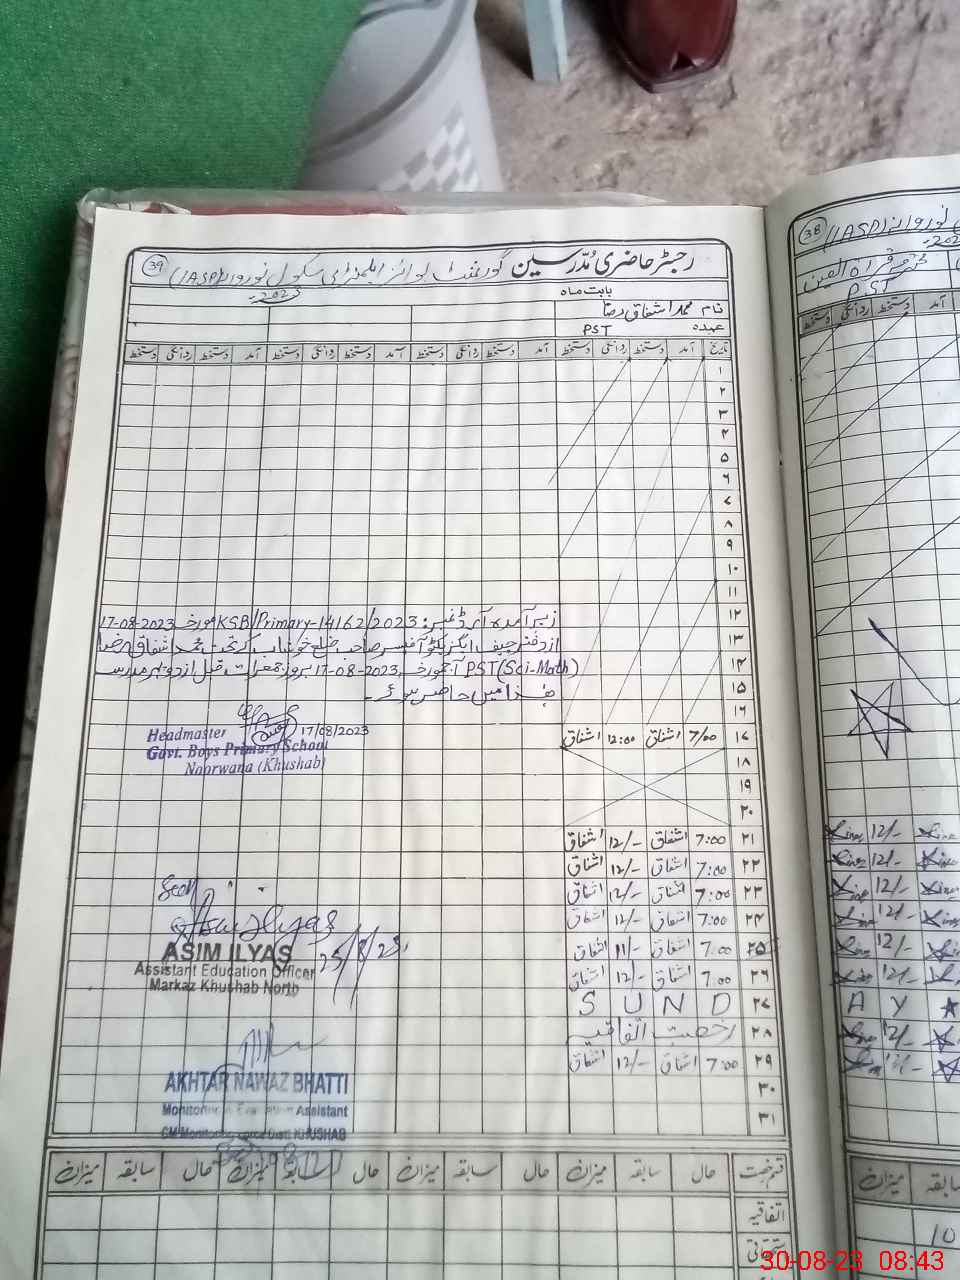 39
رجسٹر حاضری مُدّرسین گورنمنٹ بوائز ایلیمنٹری سکول نوروانہ (IASP)
بابت ماہ 2023ء
نام محمد اشفاق رضا
عہدہ PST
تاریخ آمد دستخط روانگی دستخط آمد دستخط روانگی دستخط آمد دستخط روانگی دستخط آمد دستخط روانگی دستخط
۱
۲
۳
۴
۵
۶
۷
۸
۹
۱۰
۱۱
۱۲
زیر آمدہ آرڈر نمبر: KSB/Primary-14162/2023 مورخہ 17-08-2023
۱۳
از دفتر چیف ایگزیکٹو آفیسر صاحب ضلع خوشاب کے تحت محمد اشفاق رضا
۱۴
PST(Sci-Math) آج مورخہ 17-08-2023 بروز جمعرات قبل از دوپہر مدرسہ
۱۵
ھذا میں حاضر ہوئے۔
۱۶
17/08/2023
Headmaster
Govt. Boys Primary School
Noorwana (Khushab)
۱۷ 7/00 اشفاق 12:00 اشفاق
۱۸
۱۹
۲۰
۲۱ 7:00 اشفاق 12/- اشفاق
۲۲ 7:00 اشفاق 12/- اشفاق
۲۳ 7:00 اشفاق 12/- اشفاق
۲۴ 7:00 اشفاق 12/- اشفاق
۲۵ 7:00 اشفاق 11/- اشفاق
۲۶ 7:00 اشفاق 12/- اشفاق
۲۷ S U N D
۲۸ رخصت اتفاقیہ
۲۹ 7:00 اشفاق 12/- اشفاق
۳۰
۳۱
Seen
Asim Ilyas
25/8/23
ASIM ILYAS
Assistant Education Officer
Markaz Khushab North
AKHTAR NAWAZ BHATTI
Monitoring & Evaluation Assistant
CM Monitoring Force Distt KHUSHAB
قسم رخصت حال سابقہ میزان حال سابقہ میزان حال سابقہ میزان حال سابقہ میزان
اتفاقیہ
38
نوروانہ (IASP)
PST
آمد دستخط روانگی دستخط
12/-
12/-
12/-
12/-
12/-
12/-
A Y
12/-
سابقہ میزان
10
30-08-23 08:43